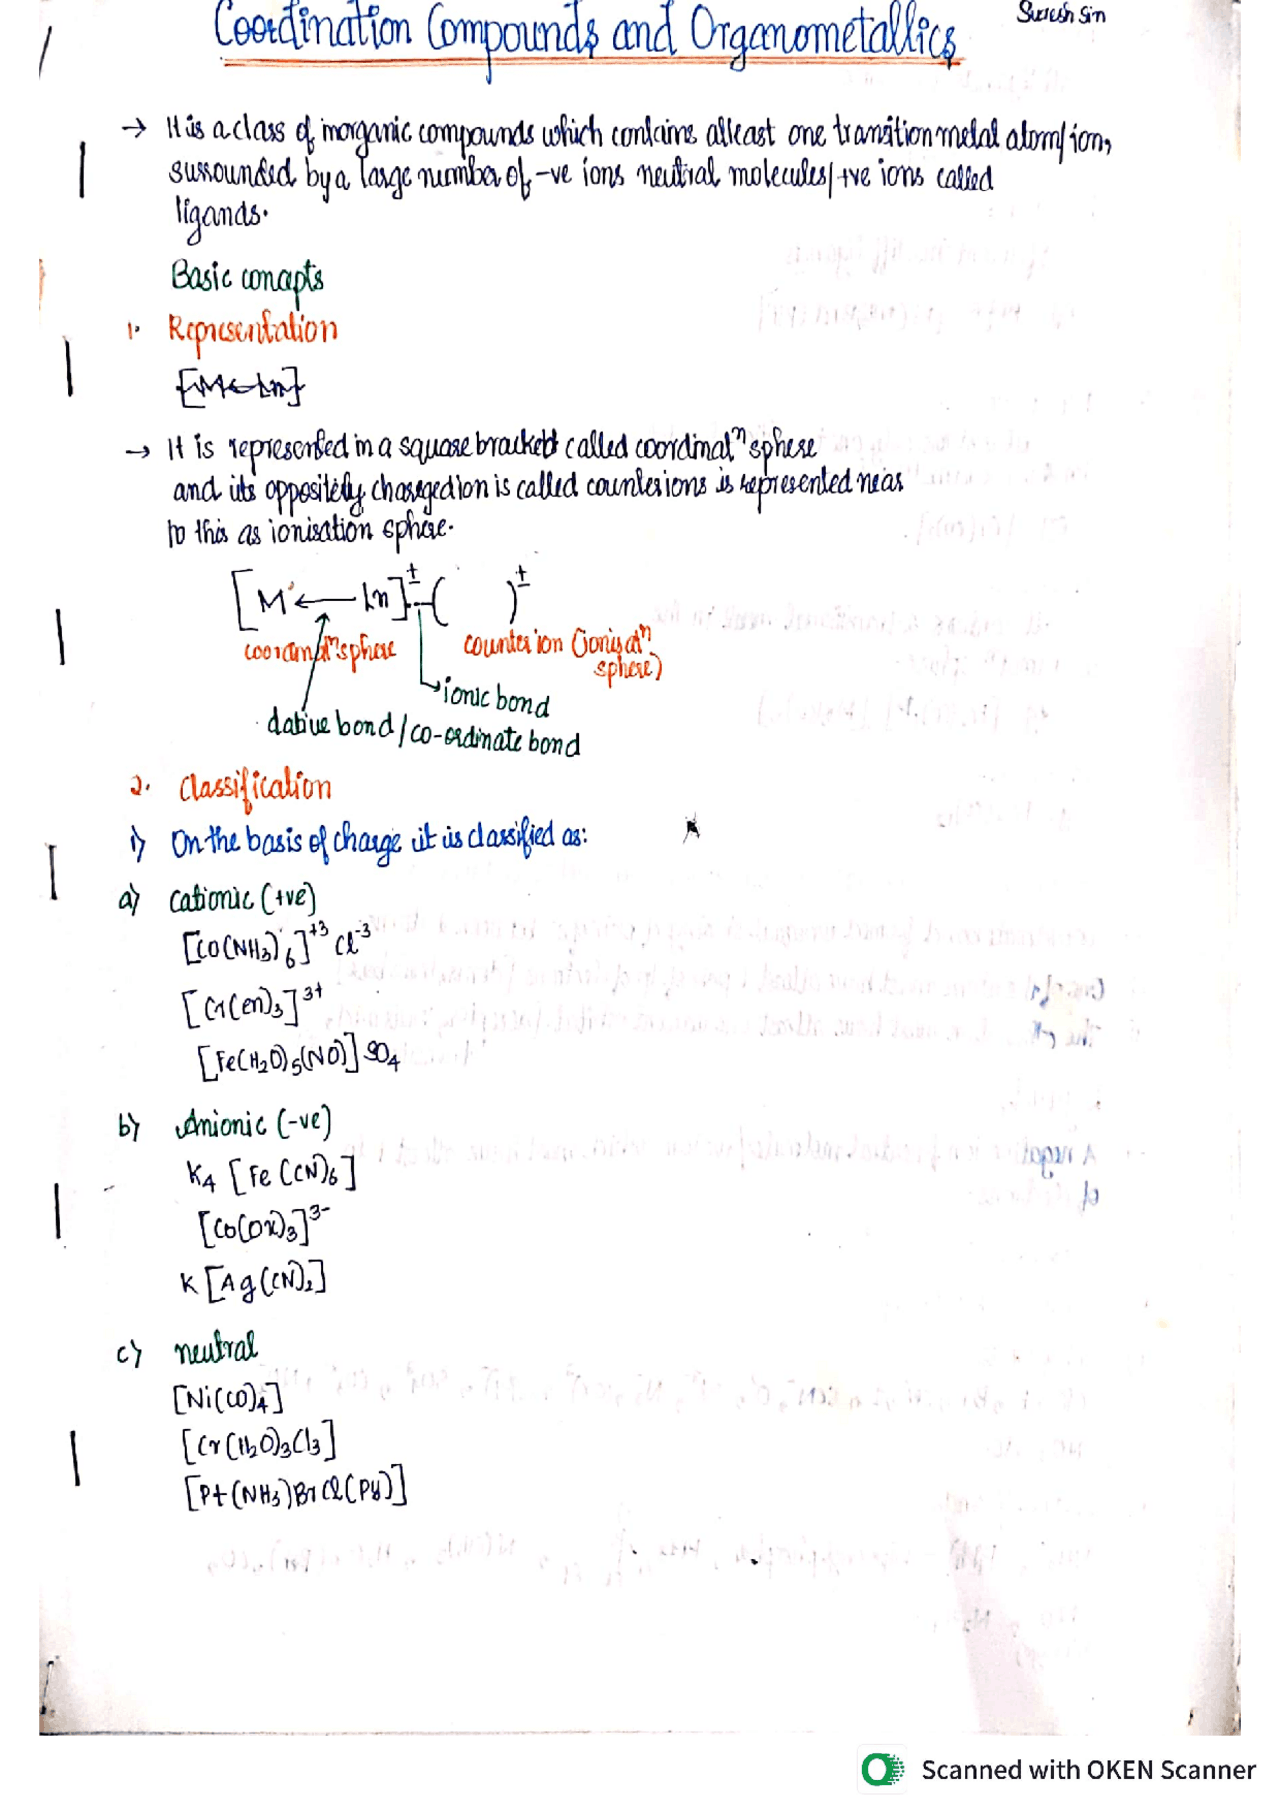 Coordination Compounds and Organometallics
Suresh Sin
→ It is a class of inorganic compounds which contains atleast one transition metal atom/ion,
surrounded by a large number of -ve ions neutral molecules/+ve ions called
ligands.
Basic concepts
1. Representation
[M←Ln]
→ It is represented in a square bracket called coordinatⁿ sphere
and its oppositely charged ion is called counter ions is represented near
to this as ionisation sphere.
[M ← Ln]± --( )±
coordinatⁿ sphere counter ion (ionisatⁿ
sphere)
ionic bond
dative bond/co-ordinate bond
2. Classification
i) On the basis of charge it is classified as:
a) cationic (+ve)
[Co(NH₃)₆]⁺³ Cl⁻³
[Cr(en)₃]³⁺
[Fe(H₂O)₅(NO)]SO₄
b) Anionic (-ve)
K₄[Fe(CN)₆]
[Co(Ox)₃]³⁻
K[Ag(CN)₂]
c) neutral
[Ni(CO)₄]
[Cr(H₂O)₃Cl₃]
[Pt(NH₃)BrCl(Py)]
Scanned with OKEN Scanner